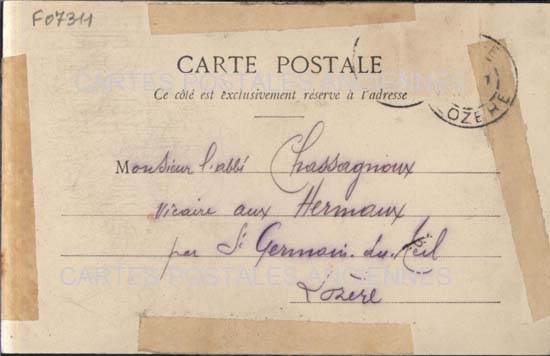 F07311
CARTE POSTALE
CARTES POSTALES ANCIENNES
Ce côté est exclusivement réservé à l'adresse
LOZERE
Monsieur l'abbé Chassagnoux
Vicaire aux Hermaux
par St Germain-du-Teil
CARTES POSTALES ANCIENNES
Lozère